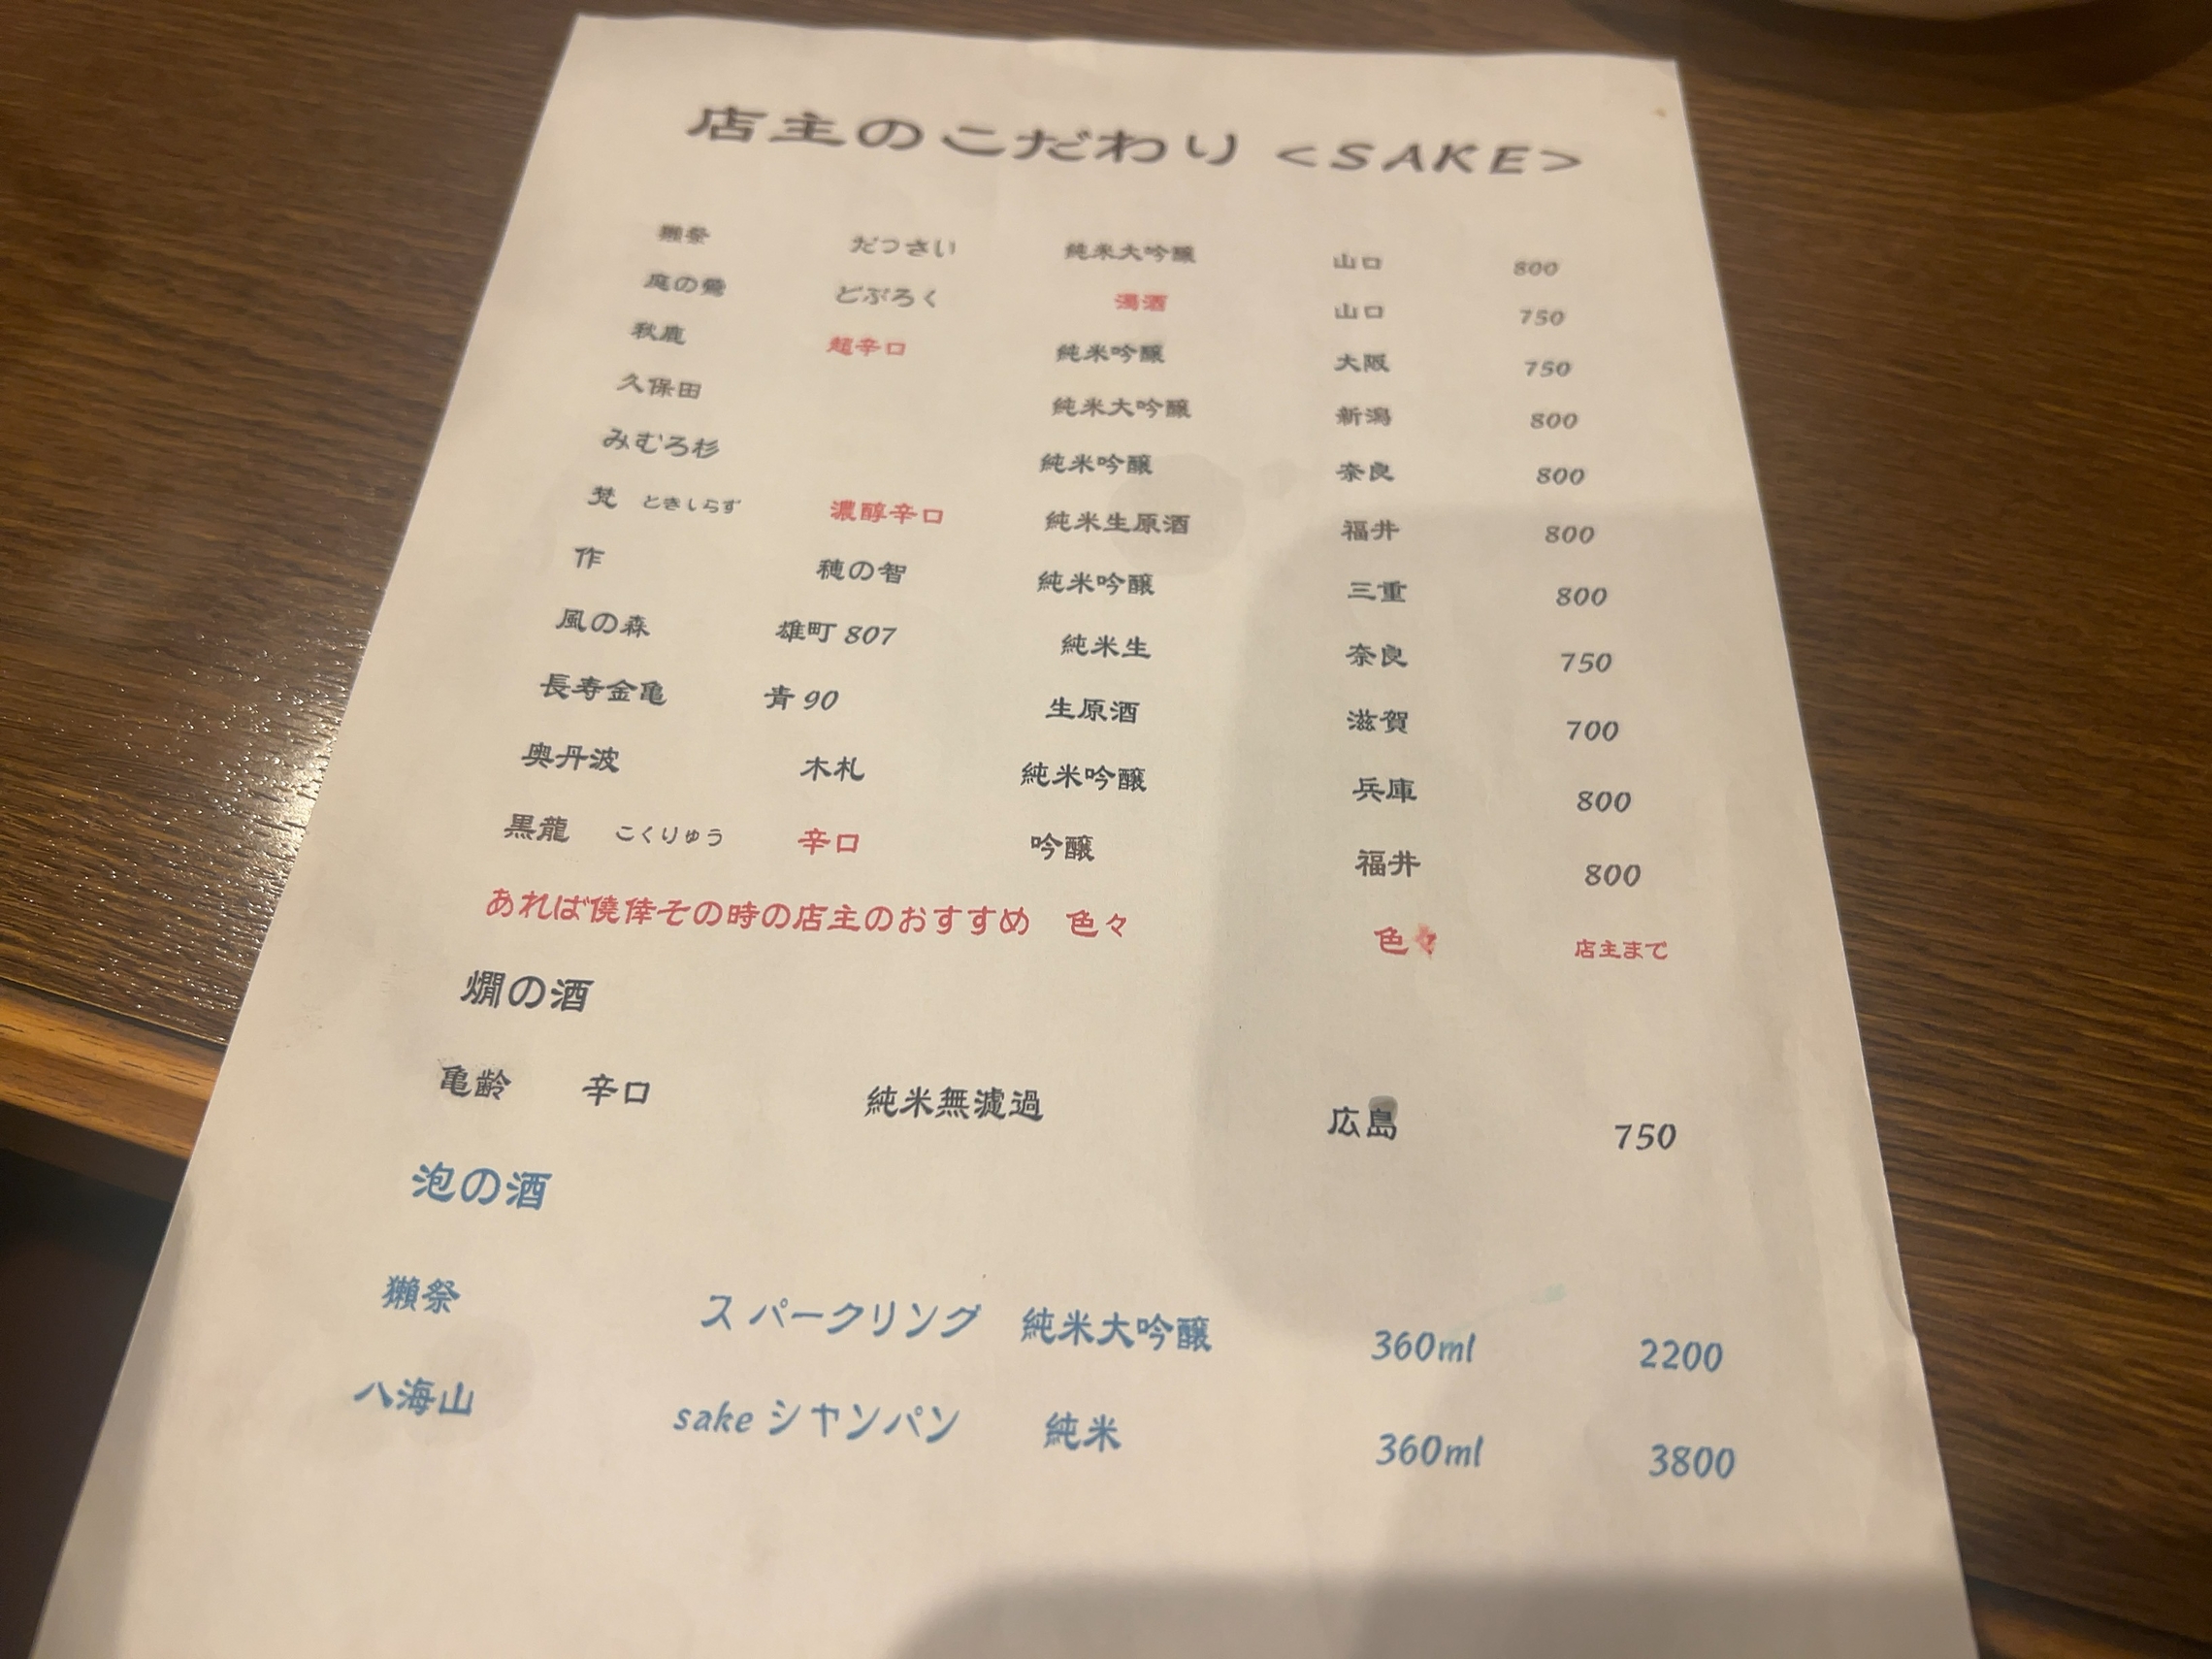 店主のこだわり <SAKE>
獺祭 だっさい 純米大吟醸 山口 800
庭の鶯 どぶろく 濁酒 山口 750
秋鹿 超辛口 純米吟醸 大阪 750
久保田 純米大吟醸 新潟 800
みむろ杉 純米吟醸 奈良 800
梵 ときしらず 濃醇辛口 純米生原酒 福井 800
作 穂の智 純米吟醸 三重 800
風の森 雄町 807 純米生 奈良 750
長寿金亀 青 90 生原酒 滋賀 700
奥丹波 木札 純米吟醸 兵庫 800
黒龍 こくりゅう 辛口 吟醸 福井 800
あれば僥倖その時の店主のおすすめ 色々 色々 店主まで
燗の酒
亀齢 辛口 純米無濾過 広島 750
泡の酒
獺祭 スパークリング 純米大吟醸 360ml 2200
八海山 sake シヤンパン 純米 360ml 3800